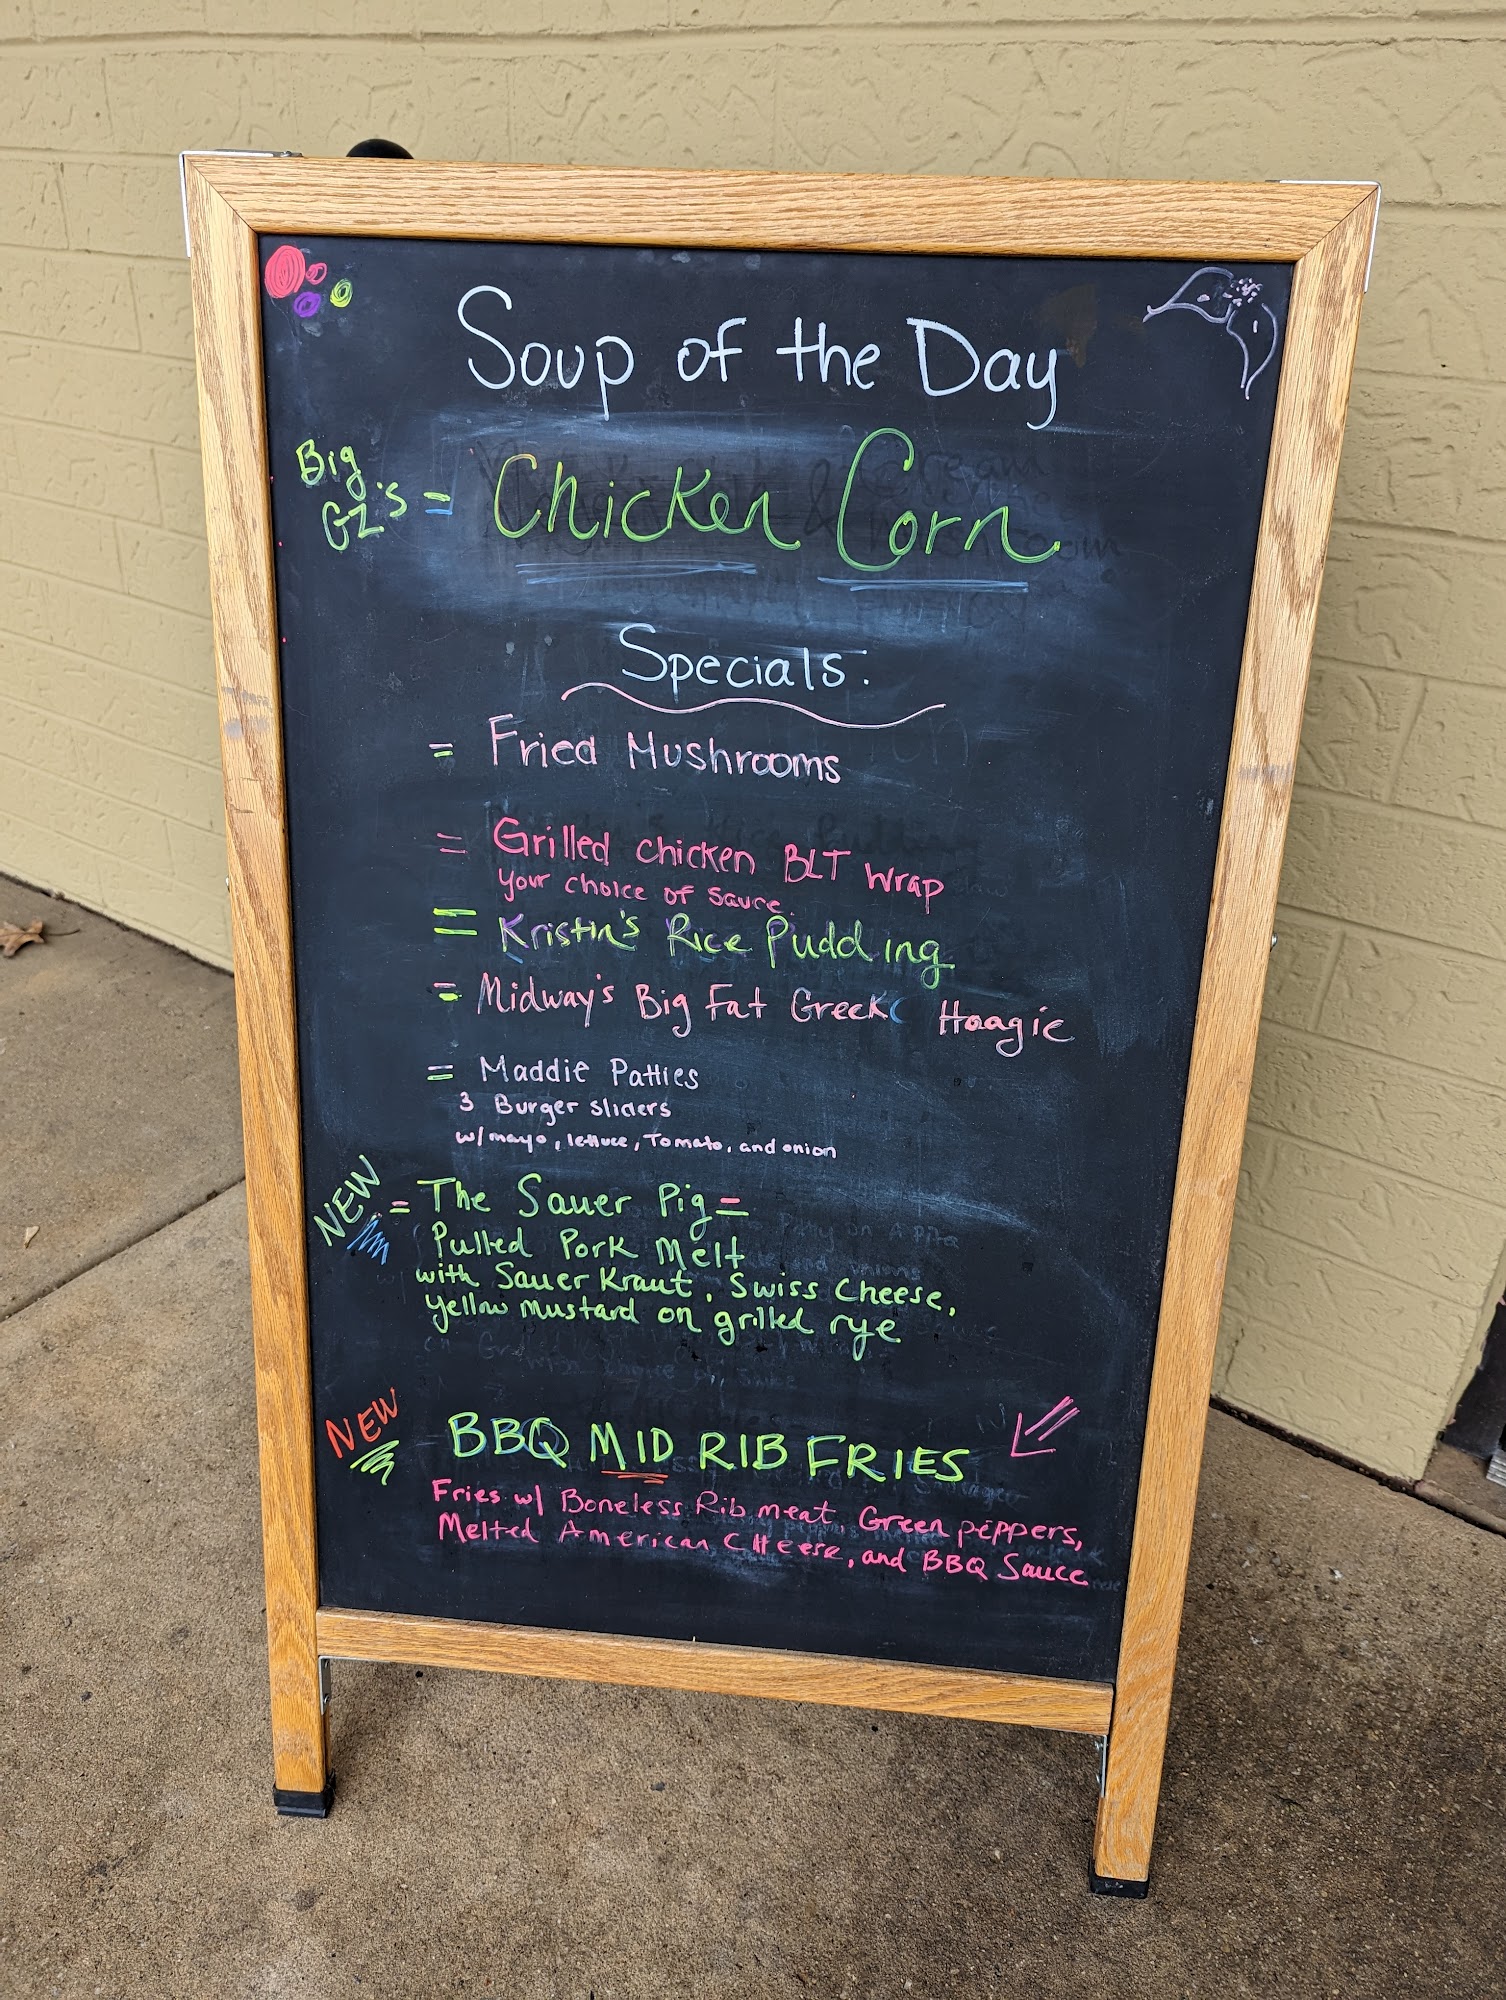 Soup of the Day
Big
GZ's = Chicken Corn
Specials:
= Fried Mushrooms
= Grilled chicken BLT Wrap
your choice of sauce.
= Kristin's Rice Pudding
= Midway's Big Fat Greek Hoagie
= Maddie Patties
3 Burger sliders
w/mayo, lettuce, Tomato, and onion
NEW = The Sauer Pig =
Pulled Pork Melt
with Sauer Kraut, Swiss Cheese,
yellow mustard on grilled rye
NEW BBQ MID RIB FRIES
Fries w/ Boneless Rib meat, Green peppers,
Melted American CHeese, and BBQ Sauce